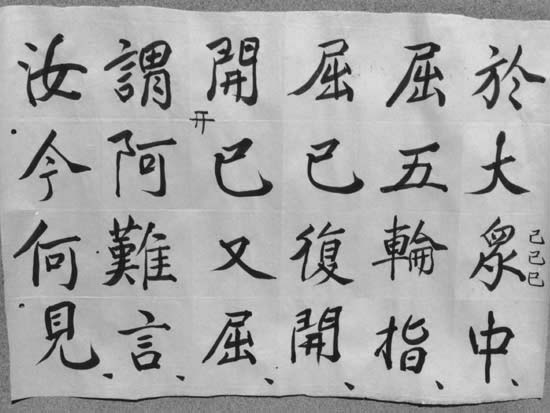 於大眾中、
屈五輪指、
屈已復開、
開已又屈、
謂阿難言、
汝今何見、
己已巳
开